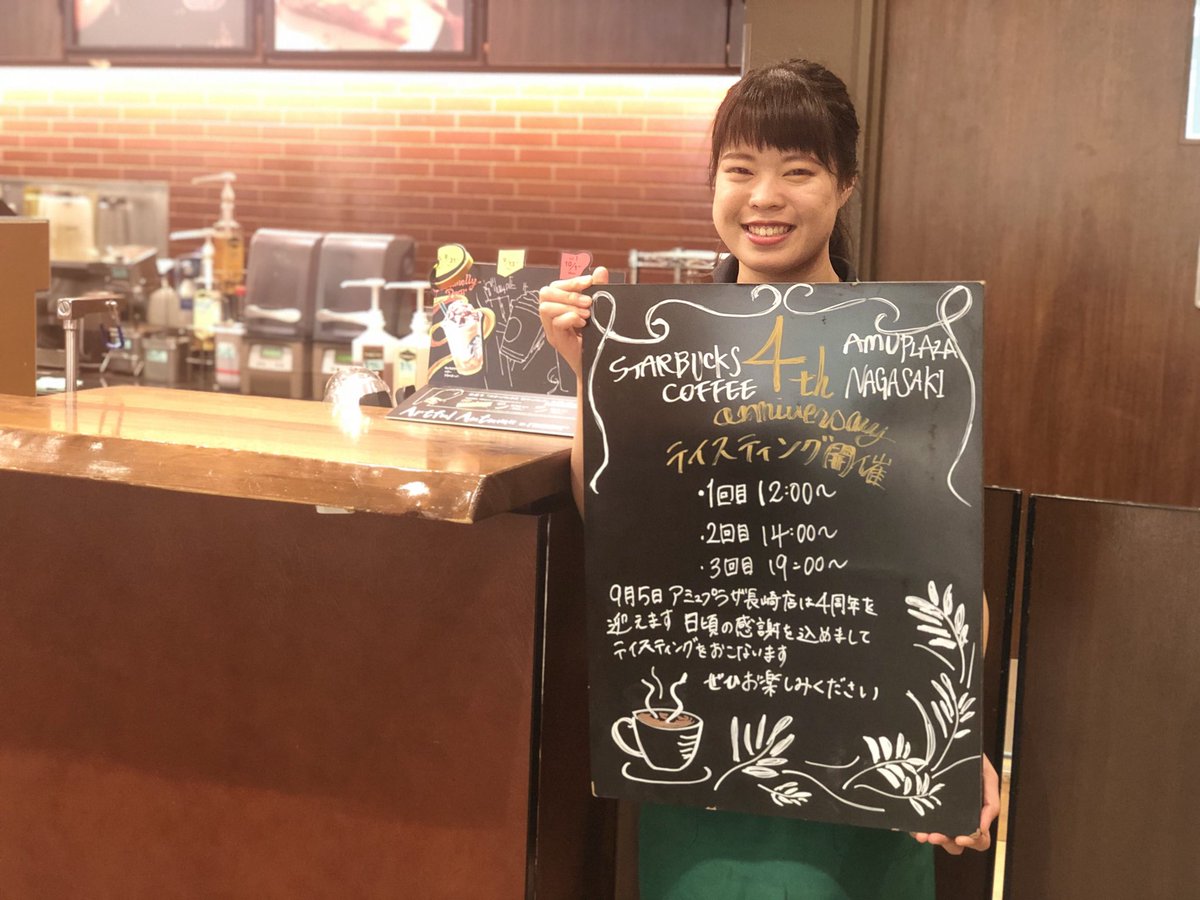 STARBUCKS COFFEE
4th
AMUPLAZA NAGASAKI
anniversary
テイスティング開催
・1回目 12:00〜
・2回目 14:00〜
・3回目 19:00〜
9月5日 アミュプラザ長崎店は4周年を
迎えます 日頃の感謝を込めまして
テイスティングをおこないます
ぜひお楽しみください
Artful Autumn